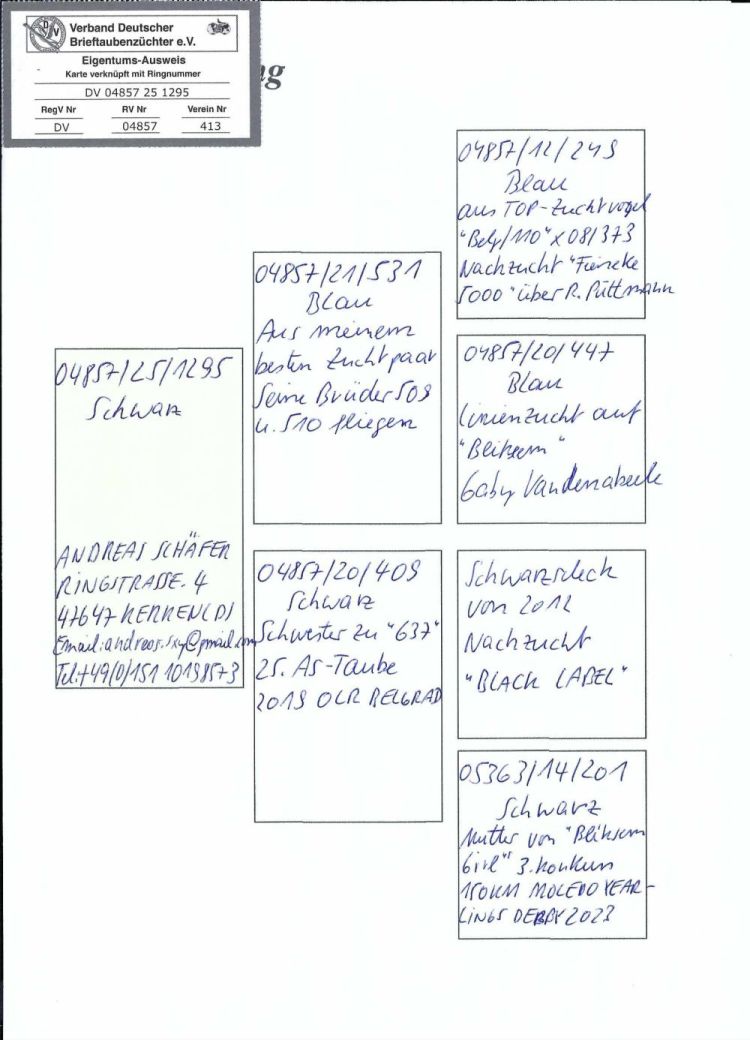 Verband Deutscher
Brieftaubenzüchter e.V.
Eigentums-Ausweis
Karte verknüpft mit Ringnummer
DV 04857 25 1295
RegV Nr RV Nr Verein Nr
DV 04857 413
04857/25/1295
Schwarz
ANDREAS SCHÄFER
RINGSTRASSE. 4
47647 KERKEN (D)
Tel.+49(0)151 10198573
04857/21/531
Blau
Aus meinem
besten Zuchtpaar
Seine Brüder 509
u. 510 fliegen
04857/20/409
Schwarz
Schwester zu "637"
25. As-Taube
2019 OLR BELGRAD
04857/12/249
Blau
aus TOP-Zuchtvogel
"Belg/110" x 08/373
Nachzucht "Fieneke
5000" über R. Püttmann
04857/20/447
Blau
Linienzucht auf
"Bliksem"
Gaby Vandenabeele
Schwarzscheck
von 2012
Nachzucht
"BLACK LABEL"
05363/14/201
Schwarz
Mutter von "Bliksem
Girl" 3. Konkurs
150KM MOLEDO YEAR-
LINGS DERBY 2023